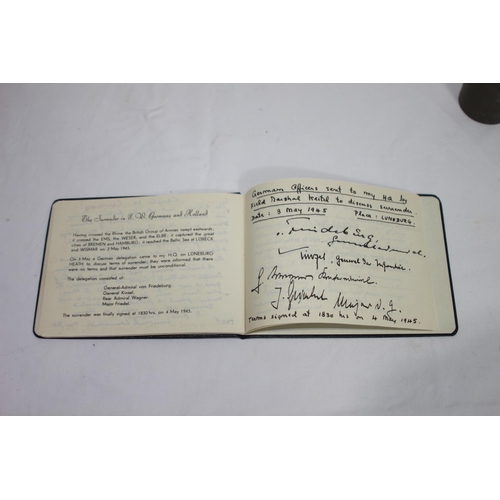 The Surrender in N. W. Germany and Holland
Having crossed the Rhine the British Group of Armies swept eastwards;
it crossed the EMS, the WESER, and the ELBE; it captured the great
cities of BREMEN and HAMBURG; it reached the Baltic Sea at LUBECK
and WISMAR on 2 May 1945.
On 3 May a German delegation came to my H.Q. on LUNEBURG
HEATH to discuss terms of surrender; they were informed that there
were no terms and that surrender must be unconditional.
The delegation consisted of:
General-Admiral von Friedeburg.
General Kinzel.
Rear Admiral Wagner.
Major Friedel.
The surrender was finally signed at 1830 hrs. on 4 May 1945.
German Officers sent to my HQ by
Field Marshal Keitel to discuss surrender.
Date: 3 May 1945 Place: LUNEBURG.
Kinzel, General der Infanterie.
Major
Terms signed at 1830 hrs on 4 May 1945.